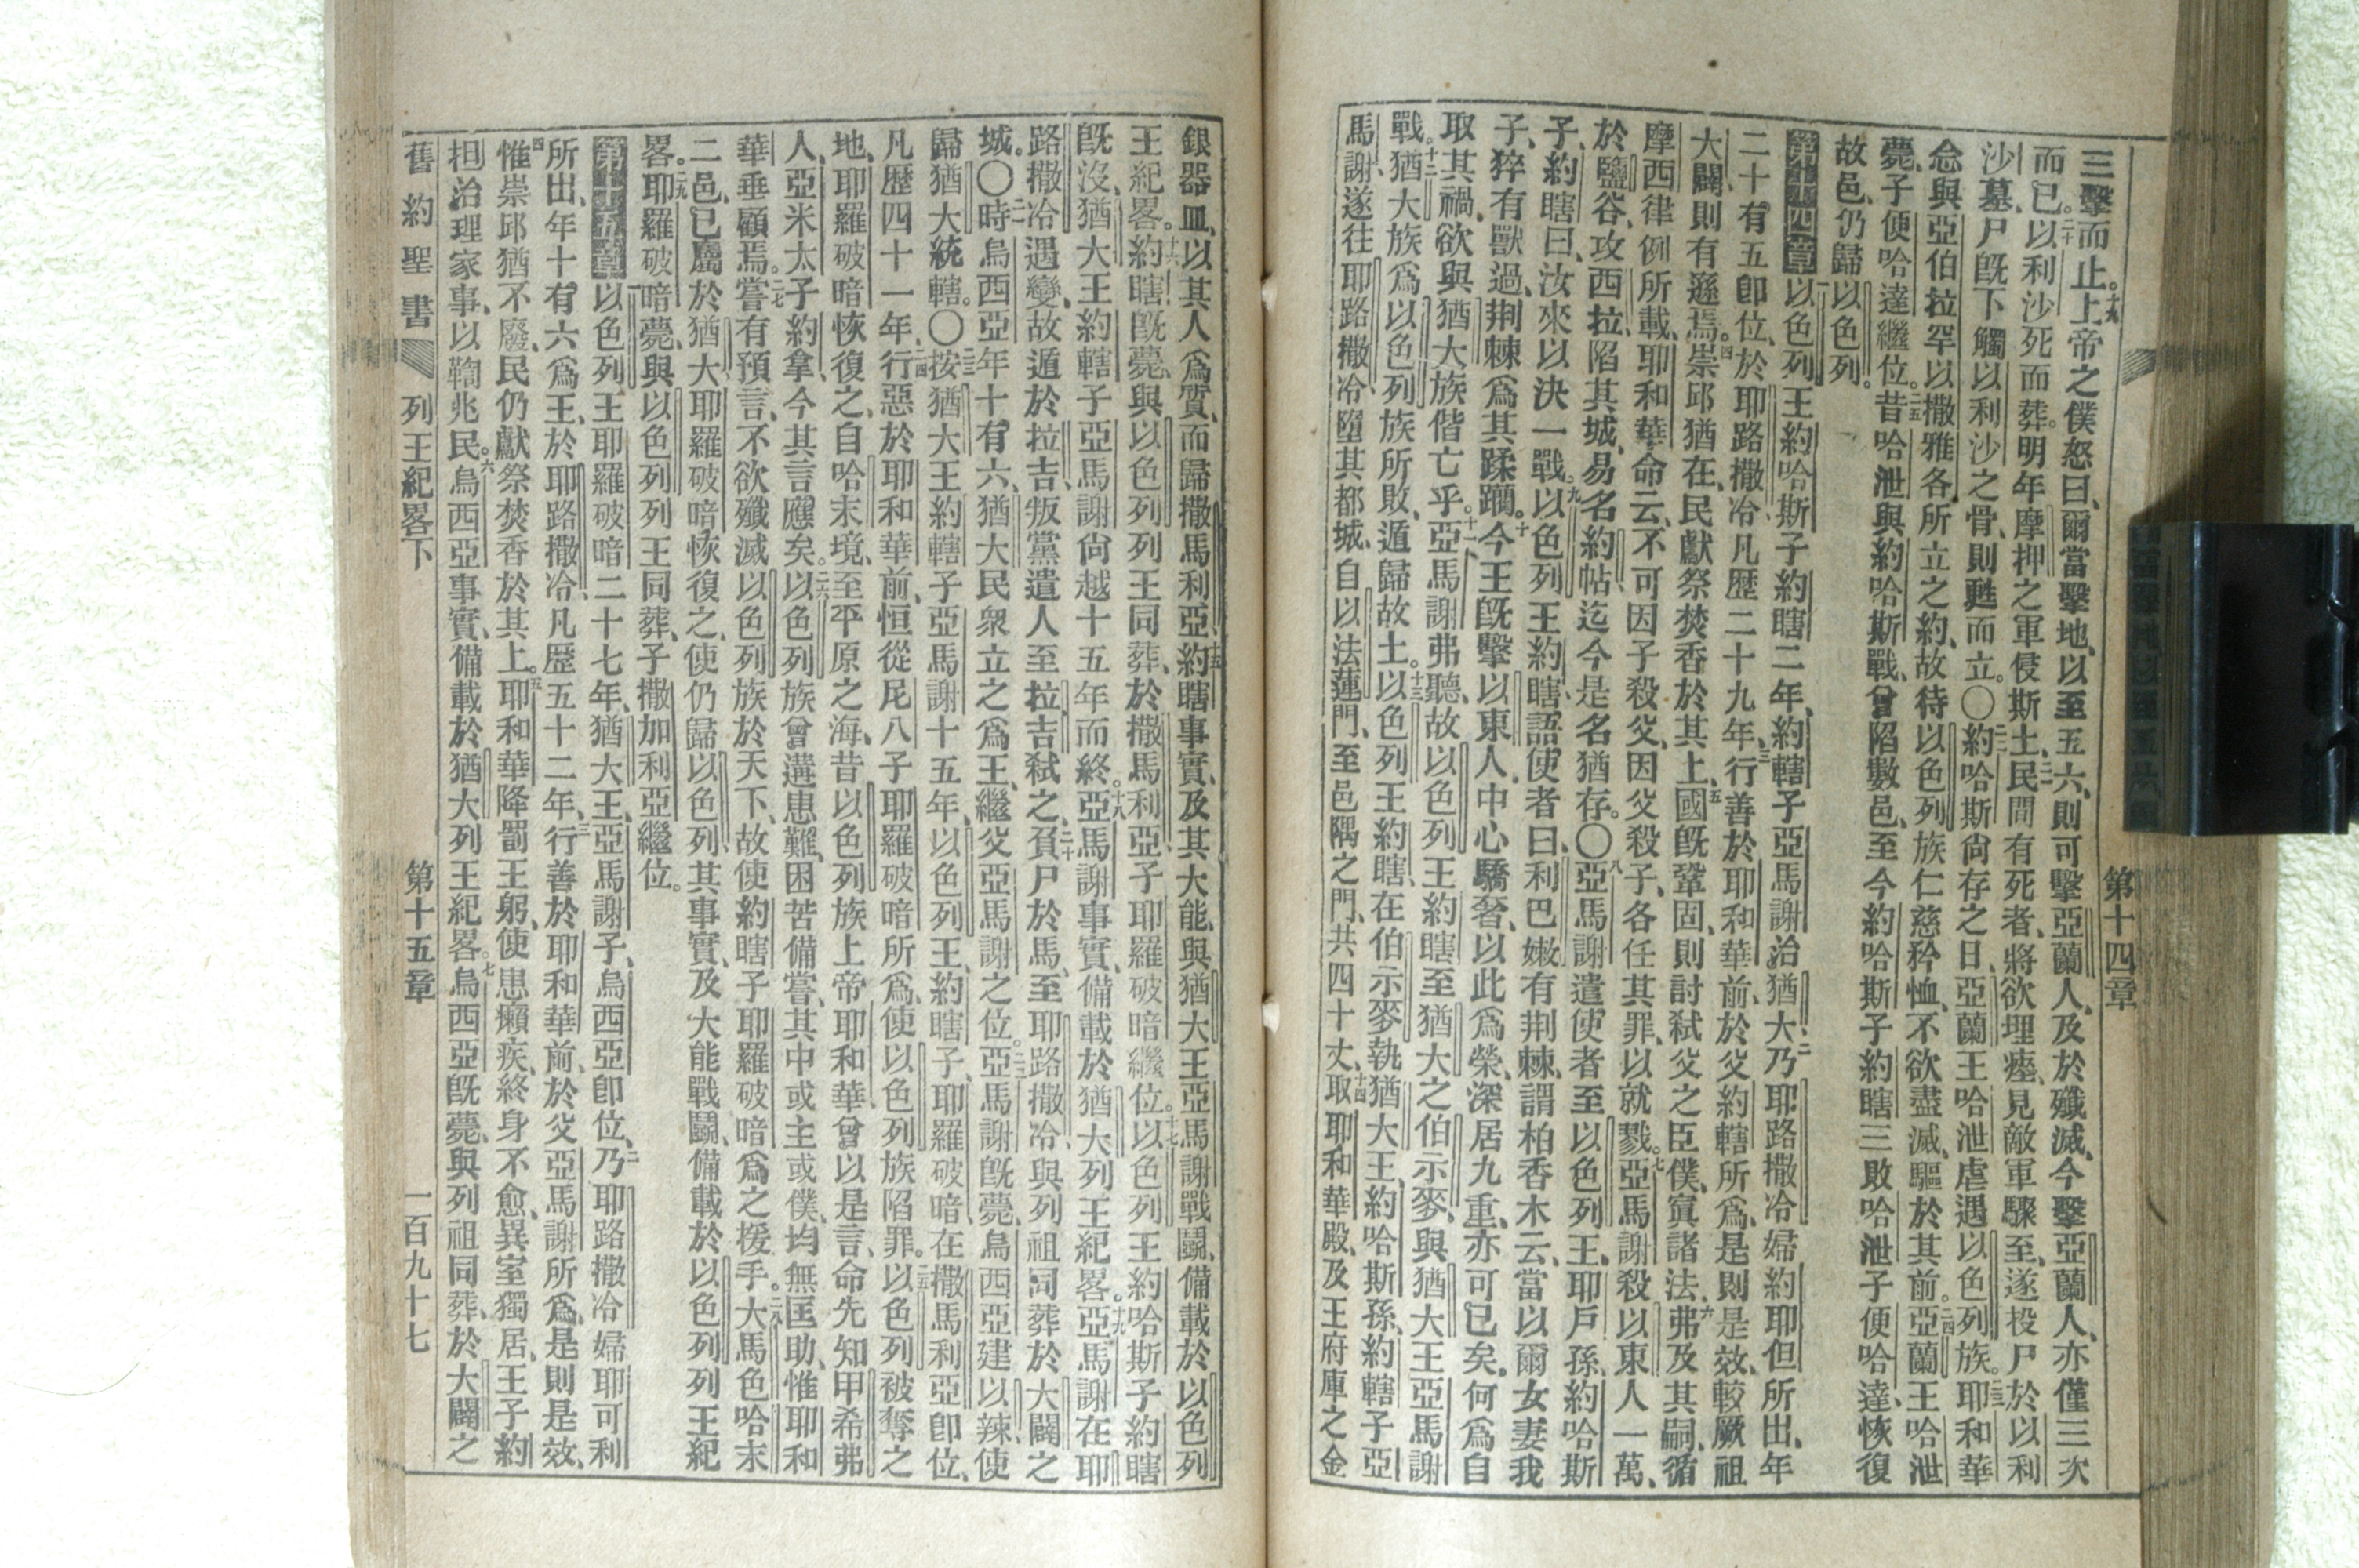 第十四章
三擊而止、十九上帝之僕怒曰、爾當擊地、以至五六、則可擊亞蘭人、及於殲滅、今擊亞蘭人、亦僅三次
而已。二十以利沙死而葬。明年摩押之軍侵斯土、二一民間有死者、將欲埋瘞、見敵軍驟至、遂投尸於以利
沙墓、尸旣下觸以利沙之骨、則甦而立。〇二二約哈斯尙存之日、亞蘭王哈泄虐遇以色列族。二三耶和華
念與亞伯拉罕以撒雅各所立之約、故待以色列族仁慈矜恤、不欲盡滅、驅於其前。二四亞蘭王哈泄
薨、子便哈達繼位。二五昔哈泄與約哈斯戰、曾陷數邑、至今約哈斯子約瞎三敗哈泄子便哈達、恢復
故邑、仍歸以色列。
第十四章 一以色列王約哈斯子約瞎二年、約轄子亞馬謝治猶大、二乃耶路撒冷婦約耶但所出、年
二十有五卽位、於耶路撒冷凡歷二十九年、三行善於耶和華前、於父約轄所爲、是則是效、較厥祖
大闢、則有遜焉。四崇邱猶在、民獻祭焚香於其上、五國旣鞏固、則討弑父之臣僕、寘諸法、六弗及其嗣、循
摩西律例所載、耶和華命云、不可因子殺父、因父殺子、各任其罪、以就戮。七亞馬謝殺以東人一萬、
於鹽谷、攻西拉、陷其城、易名約帖、迄今是名猶存。〇八亞馬謝遣使者至以色列王、耶戶孫、約哈斯
子、約瞎曰、汝來以決一戰。九以色列王約瞎、語使者曰、利巴嫩有荆棘、謂柏香木云、當以爾女妻我
子、猝有獸過、荆棘爲其蹂躪。十今王旣擊以東人、中心驕奢、以此爲榮、深居九重、亦可已矣。何爲自
取其禍、欲與猶大族偕亡乎。十一亞馬謝弗聽、故以色列王約瞎至猶大之伯示麥、與猶大王亞馬謝
戰。十二猶大族爲以色列族所敗、遁歸故土。十三以色列王約瞎、在伯示麥執猶大王、約哈斯孫、約轄子亞
馬謝、遂往耶路撒冷、墮其都城、自以法蓮門、至邑隅之門、共四十丈、十四取耶和華殿、及王府庫之金
銀器皿、以其人爲質、而歸撒馬利亞、十五約瞎事實、及其大能、與猶大王亞馬謝戰鬬、備載於以色列
王紀畧。十六約瞎旣薨、與以色列列王同葬、於撒馬利亞、子耶羅破暗繼位。十七以色列王約哈斯子約瞎
旣沒、猶大王約轄子亞馬謝尙越十五年而終。十八亞馬謝事實、備載於猶大列王紀畧。十九亞馬謝在耶
路撒冷遇變、故遁於拉吉、叛黨遣人至拉吉弑之、二十負尸於馬、至耶路撒冷、與列祖同葬於大闢之
城。〇二一時烏西亞年十有六、猶大民衆立之爲王、繼父亞馬謝之位。二二亞馬謝旣薨、烏西亞建以辣、使
歸猶大統轄。〇二三按猶大王約轄子亞馬謝十五年、以色列王、約瞎子、耶羅破暗在撒馬利亞卽位、
凡歷四十一年、二四行惡於耶和華前、恒從尼八子耶羅破暗所爲、使以色列族陷罪。二五以色列被奪之
地、耶羅破暗恢復之、自哈末境、至平原之海、昔以色列族上帝耶和華曾以是言、命先知甲希弗
人、亞米太子約拿、今其言應矣。二六以色列族曾遘患難、困苦備嘗、其中或主或僕、均無匡助、惟耶和
華垂顧焉。二七嘗有預言、不欲殲滅以色列族於天下、故使約瞎子耶羅破暗爲之援手。二八大馬色哈末
二邑、已屬於猶大、耶羅破暗恢復之、使仍歸以色列、其事實、及大能戰鬬、備載於以色列列王紀
畧。二九耶羅破暗薨、與以色列列王同葬、子撒加利亞繼位。
第十五章 一以色列王耶羅破暗二十七年、猶大王、亞馬謝子、烏西亞卽位、二乃耶路撒冷婦耶可利
所出、年十有六爲王、於耶路撒冷、凡歷五十二年、三行善於耶和華前、於父亞馬謝所爲、是則是效、
四惟崇邱猶不廢、民仍獻祭焚香於其上。五耶和華降罰王躬、使患癩疾、終身不愈、異室獨居、王子約
担治理家事、以鞫兆民。六烏西亞事實、備載於猶大列王紀畧。七烏西亞旣薨、與列祖同葬、於大闢之
舊約聖書 列王紀畧下 第十五章 一百九十七